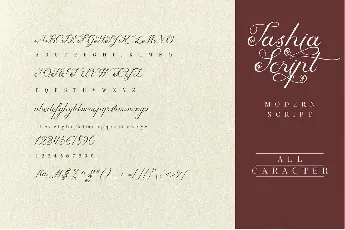 ABCDEFGHIJKLMNO
A B C D E F G H I J K L M N O
PQRST UVW XYZ
P Q R S T U V W X Y Z
abcdefghijklmnopqrstuvwxyz
abcdefghijklmnopqrstuvwxyz
1234567890
1 2 3 4 5 6 7 8 9 0
Tashia
Script
MODERN
SCRIPT
ALL
CARACTER